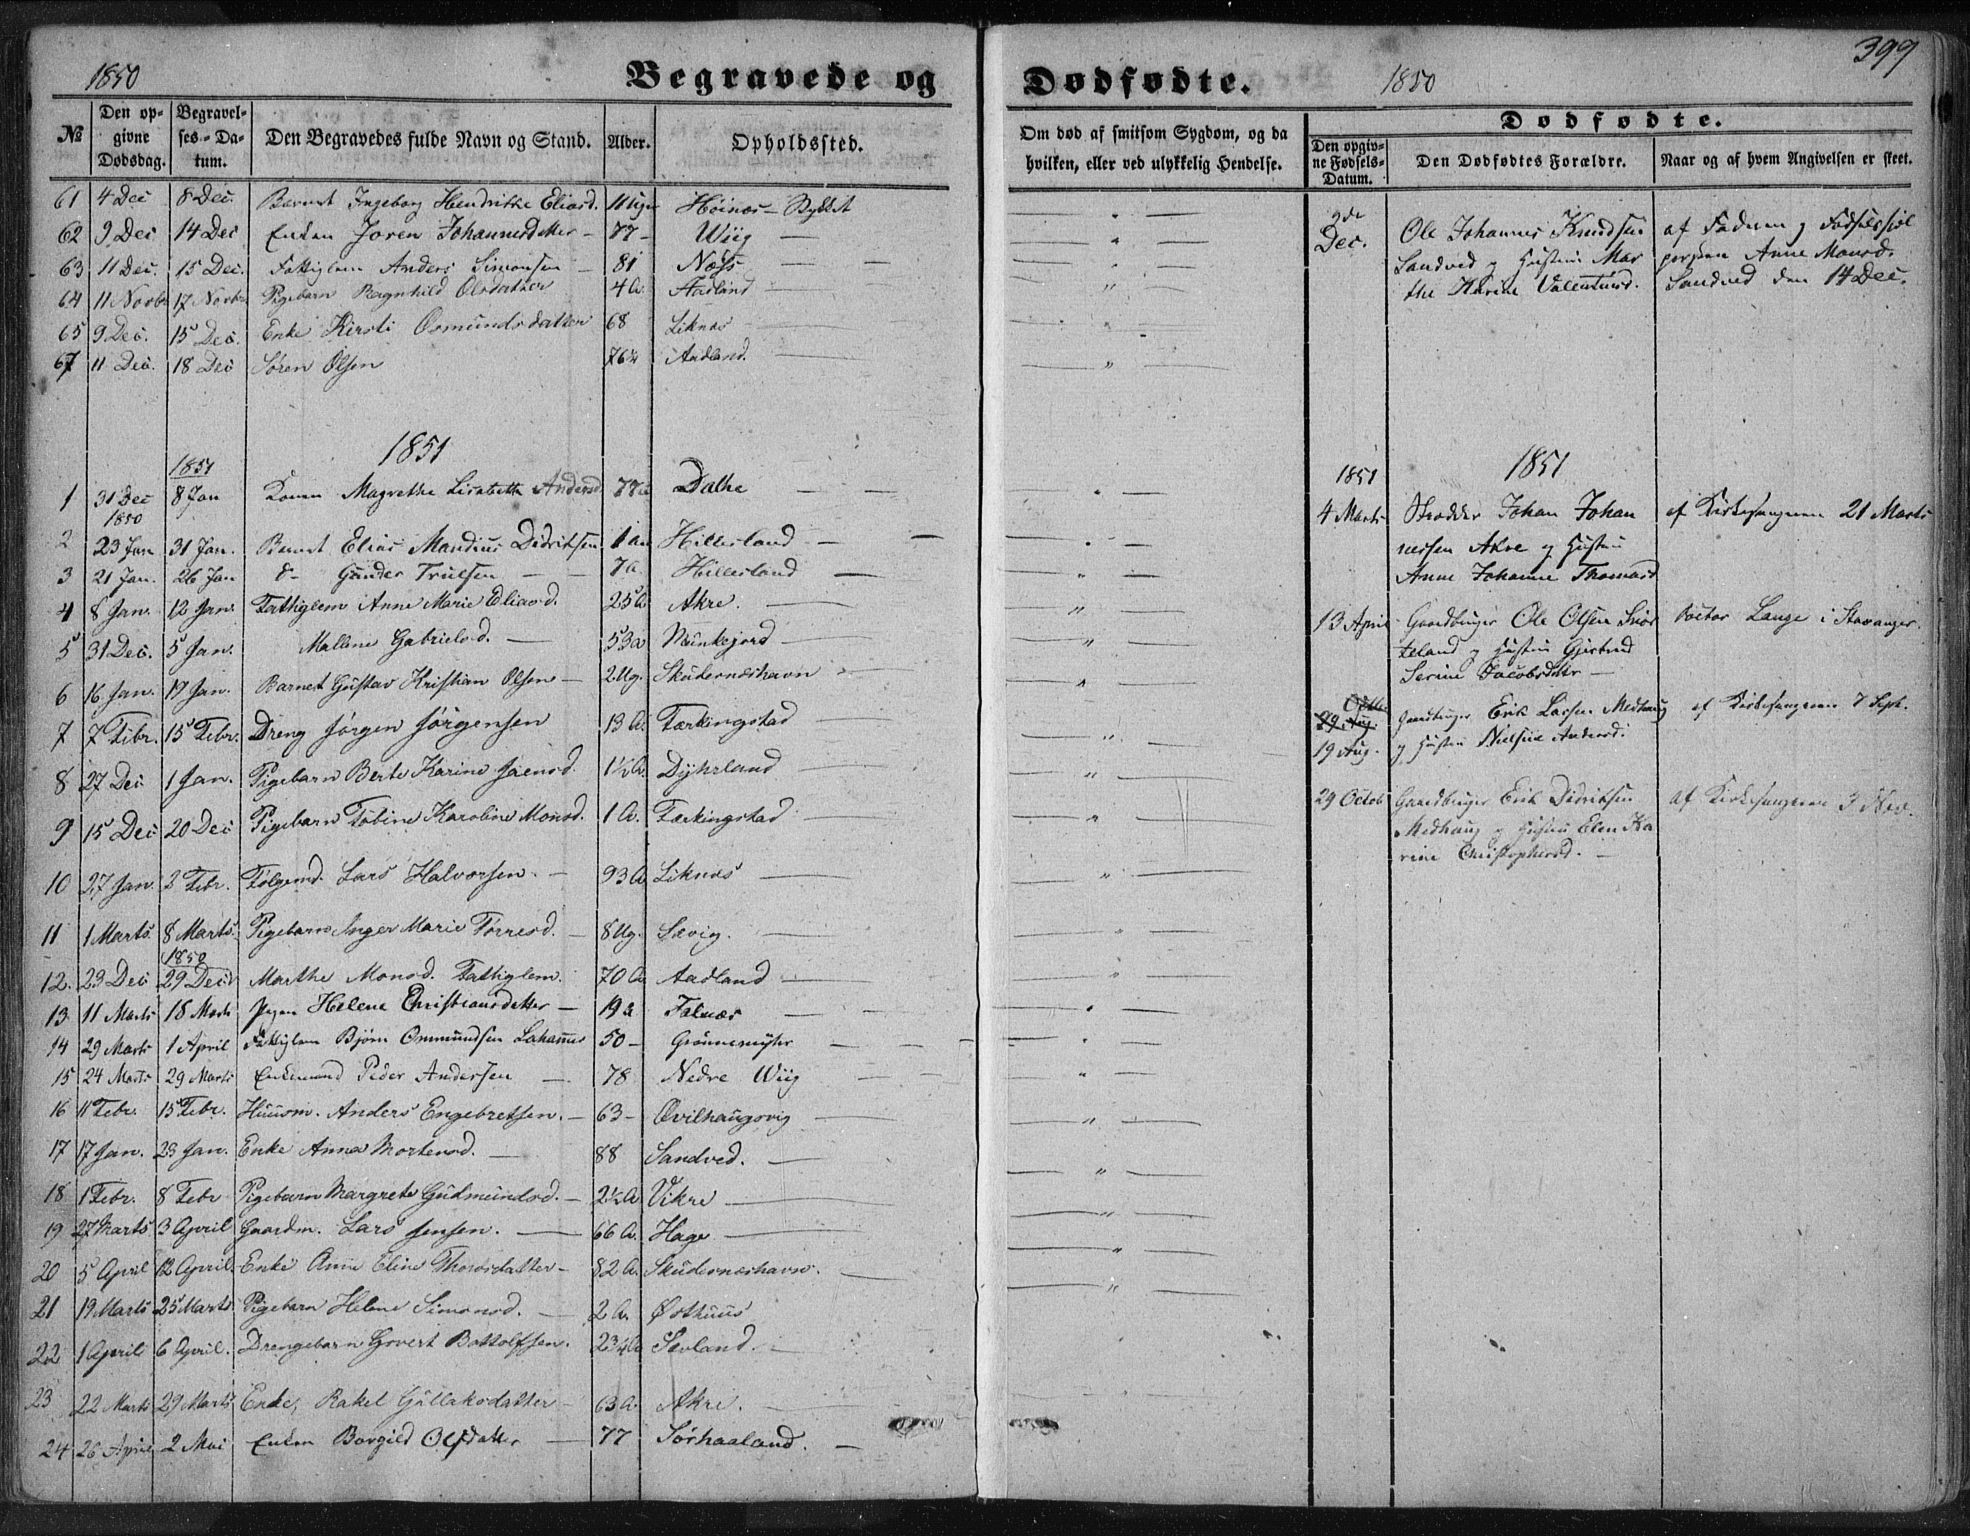 399
1850 Begravede og Dødfødte. 1850
№ Den opgivne Dødsdag. Begravelses-Datum. Den Begravedes fulde Navn og Stand. Alder. Opholdssted.
61 4 Dec 8 Dec. Barnet Ingeborg Hendrikke Eliasd. 11 Uger Høinæs
62 9 Dec 14 Dec Enken Joren Johannesdatter – 77 – Wiig
63 11 Dec. 15 Dec. Fattiglem Anders Simonsen – 81 Næss
64 11 Novbr 17 Novbr Pigebarn Ragnhild Olsdatter 4 A. Aadland
65 9 Dec. 15 Dec. Enke Kirsti Osmundsdatter 68 Liknæs
67 11 Dec. 18 Dec Søren Olsen 76 Aadland.
1851
1851
1 31 Dec 1850 8 Jan Konen Magrethe Lisabeth Andersd 77 a Dalhe
2 23 Jan 31 Jan. Barnet Elias Mandius Didriksen 1 aar Hillesland –
3 21 Jan. 26 Jan d– Gunder Truelsen – 7 a. Hillesland
4 8 Jan. 12 Jan. Fattiglem Anne Marie Eliasd. 25 A. Akre.
5 31 Dec. 5 Jan. Mallene Gabrielsd. – 53 a Munkejord –
6 16 Jan. 19 Jan. Barnet Gustav Kristian Olsen – 2 Ug. Skudesnæshavn
7 7 Febr. 15 Febr. Dreng Jørgen Jørgensen 13 A. Færkingstad
8 27 Dec 1 Jan. Pigebarn Berte Karine Jaensd. 1½ A. Dyhrland
9 15 Dec 20 Dec Pigebarn Tobine Karoline Monsd. 1 A. Færkingstad
10 27 Jan. 2 Febr. Følgemd. Lars Halvorsen. – 93 A Liknæs
11 1 Marts 8 Marts. Pigebarn Inger Marie Torresd. – 8 Ug. Sævig.
12. 23 Dec 1850 29 Decb Marthe Monsd. Fattiglem. 70 A Aadland
13 11 Marts 18 Marts Pigen Helene Christiansdatter – 19 a Falnæs
14 29 Marts 1 April Fattiglem Bjørn Ommundsen 50 – Grønnemyhr
15 24 Marts 29 Marts Enkemand Peder Andersen – 78 Nedre Wiig
16 11 Febr. 15 Febr. Huusm. Anders Engebretsen. – 63 – Qvilhaugsvig
17 17 Jan. 23 Jan. Enke Anna Mortensd. – 88 Sandved.
18 1 Febr. 8 Febr Pigebarn Margrete Gudmundsd. – 2½ A. Vikre
19 27 Marts 3 April Gaardm. Lars Jensen. – 66 A. Hage
20 5 April 12 April. Enke Ane Eline Thorsdatter – 82 A. Skudesnæshavn.
21 19 Marts 25 Marts. Pigebarn Helene Simonsd. – 2 A. Østhuus
22 1 April 6 April. Drengebarn Govert Bottolfsen. 2¾ A Sævland.
23 22 Marts 29 Marts Enke, Rakel Gullaksdatter – 63 A. Akre.
24 26 April 2 Mai Enken Borgild Olsdatter – 77 Sørhaaland.
Om død af smitsom Sygdom, og da hvilken, eller ved ulykkelig Hendelse.
Dødfødte.
Den opgivne Fødsels-Datum. Den Dødfødtes Forældre. Naar og af hvem Angivelsen er skeet.
Dec. Ole Johannes Knudsen Sandved og Hustru Marthe Karine Valentinsd. af Faderen og Anne Monsd. Sandved den 14 Dec.
1851
1851
4 Marts Skrædder Johan Johannessen Akre og Hustru Anne Johanne Thomasd af Kirkesangeren 21 Marts
13 April Gaardbruger Ole Olsen og Hustru Gjertrud Serine Jacobsdatter – Doctor Lange i Stavanger.
19 Aug. Gaardbruger Erik Larsen Medhaug og Hustru Nielsine Andersd: af Kirkesangeren 7 Sept.
29 Octob Gaardbruger Erik Didriksen Medhaug og Hustru Elen Karine Christophersd. – af Kirkesangeren 3 Nov.